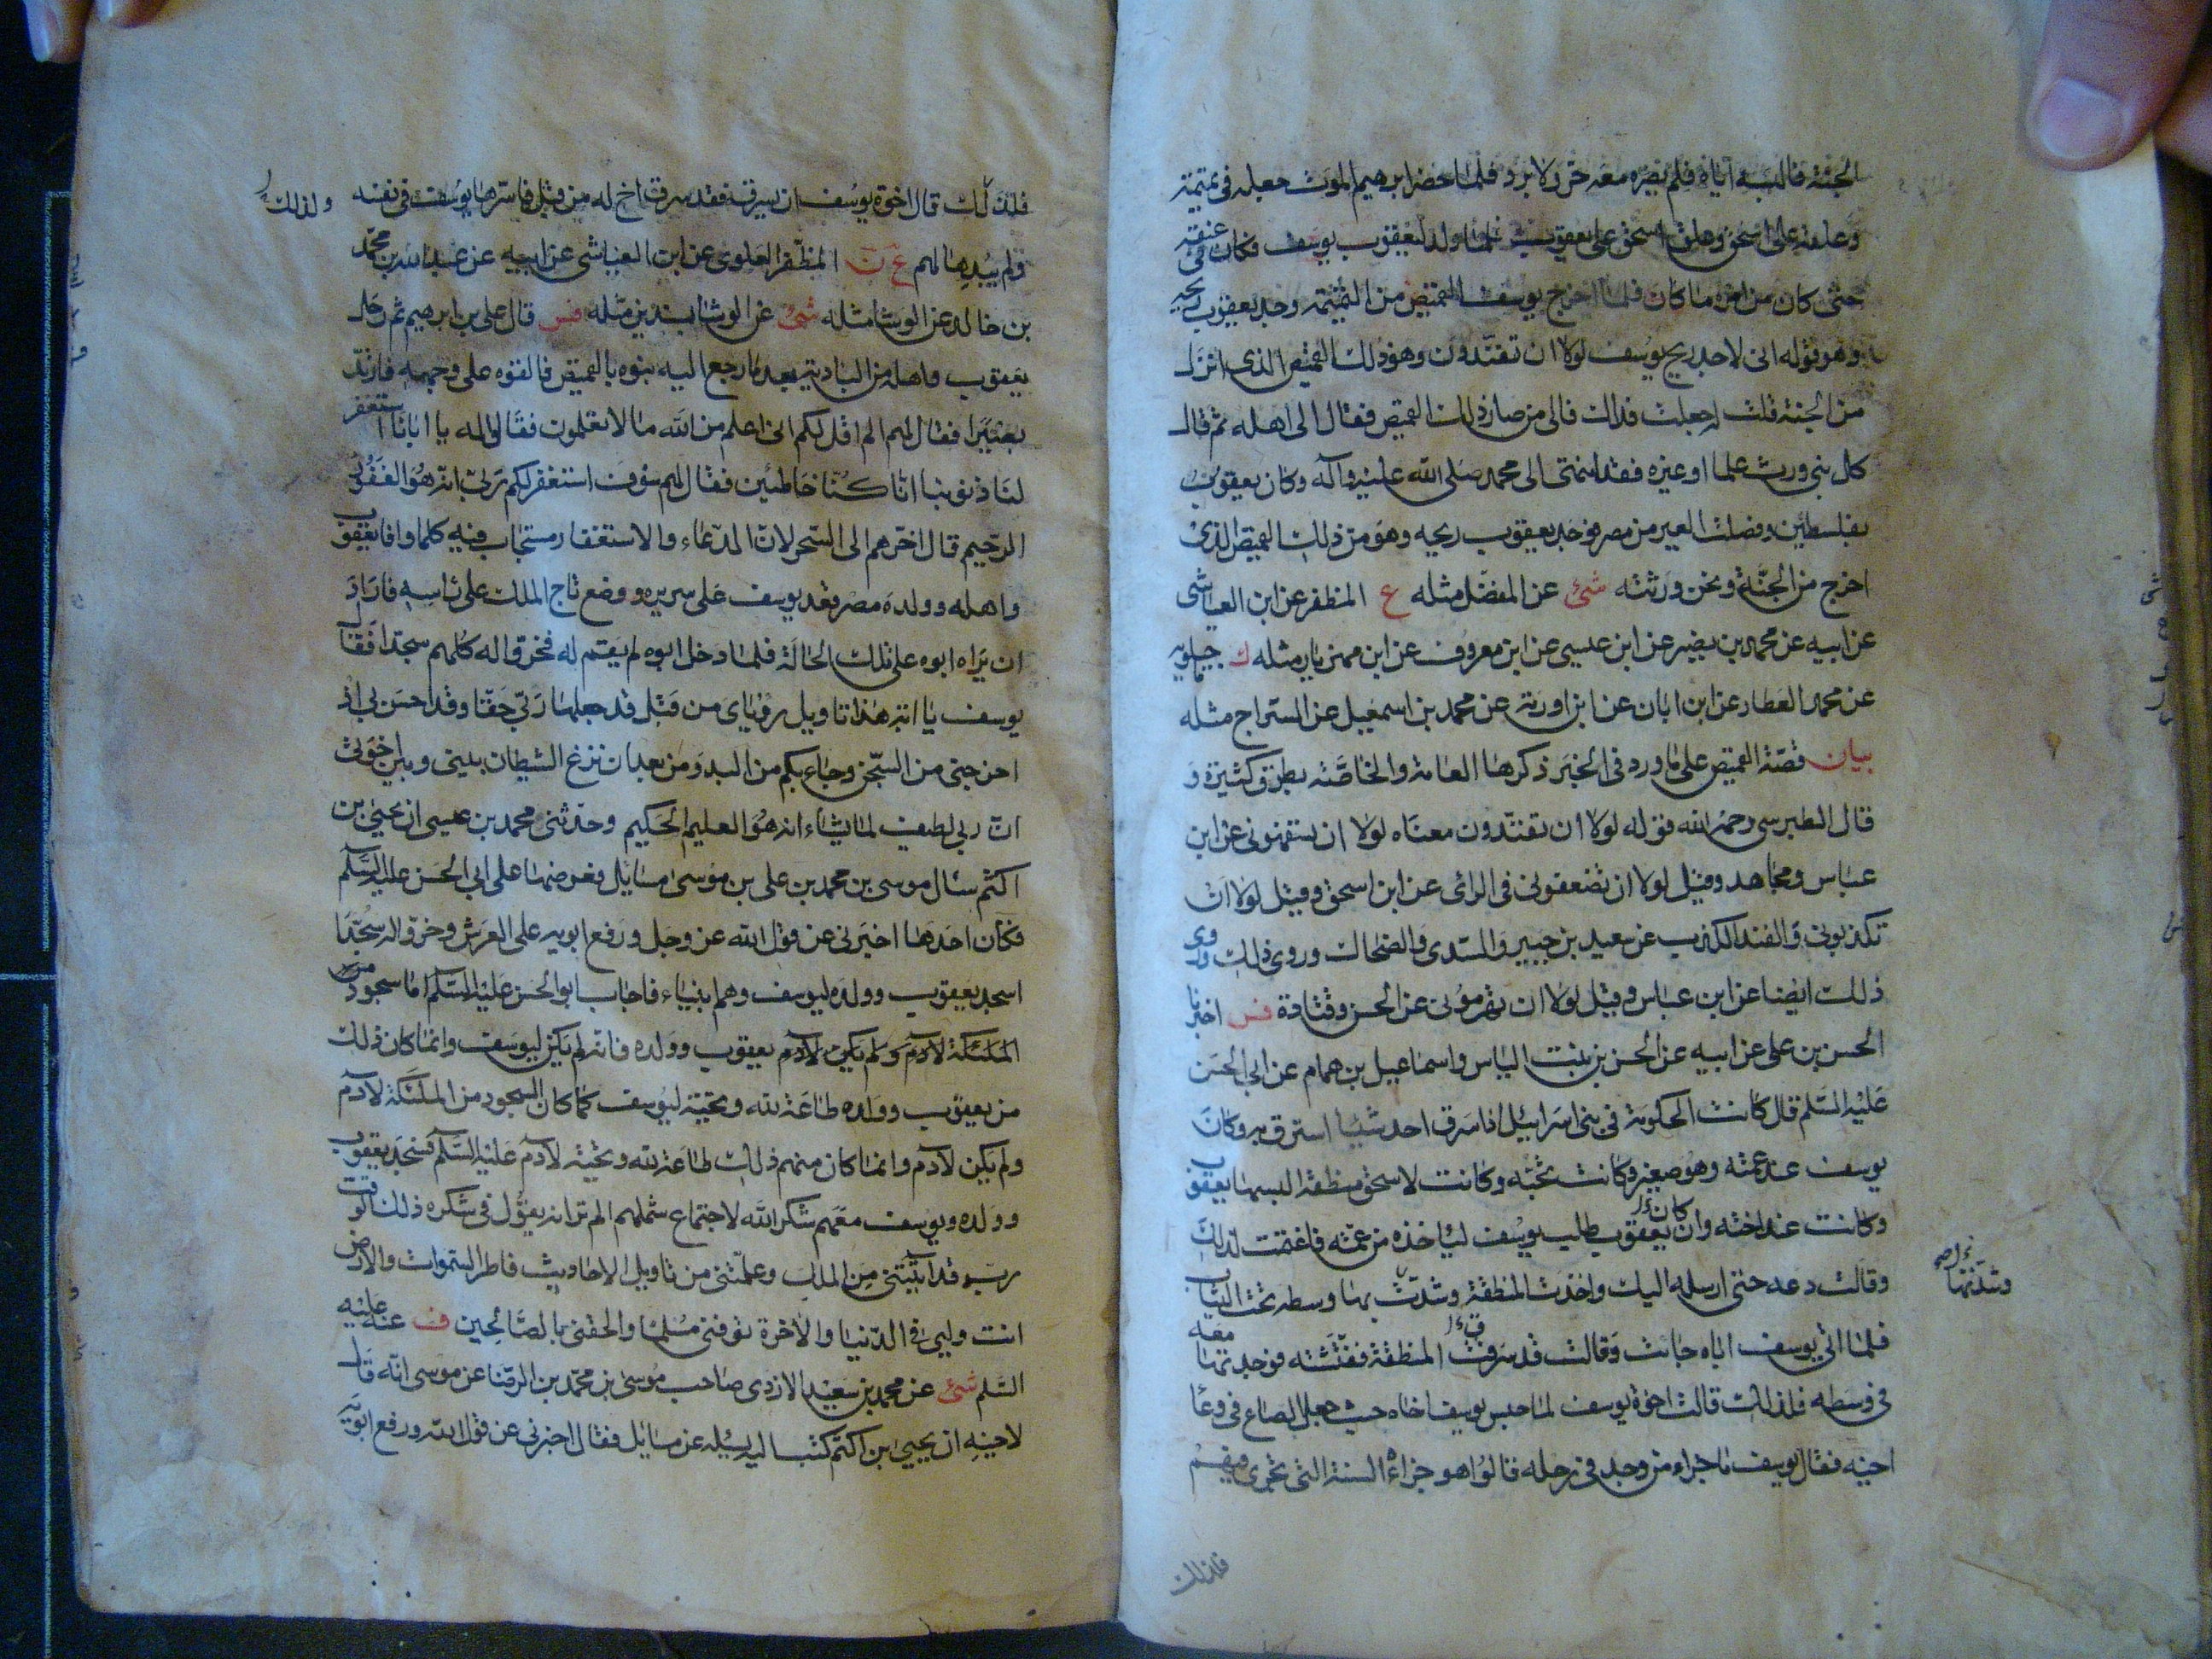 الجنة فالبسه اياه فلم يضره معه حر ولا برد فلما حضر ابرهيم الموت جعله فى تميمة
وعلقه على اسحق وعلق اسحق على يعقوب فلما ولد ليعقوب يوسف فكان فى عنقه
حتى كان من امره ما كان فلما اخرج يوسف القميص من التميمة وجد يعقوب ريحه
وهو قوله انى لاجد ريح يوسف لولا ان تفندون وهو ذلك القميص الذى انزل
من الجنة قلت له جعلت فداك فالى من صار ذلك القميص فقال الى اهله ثم قال
كل نبى ورث علما او غيره فقد انتهى الى محمد صلى الله عليه وآله وكان يعقوب
بفلسطين وفصلت العير من مصر فوجد يعقوب ريحه وهو من ذلك القميص الذى
اخرج من الجنة ونحن ورثته شئ عن المفضل مثله ع المظفر عن ابن العياشى
عن ابيه عن محمد بن نصير عن ابن عيسى عن ابن معروف عن ابن مهزيار مثله ك ماجيلويه
عن محمد العطار عن ابن ابان عن ابن اورمة عن محمد بن اسمعيل عن السراج مثله
بيان قصة القميص على ما ورد فى الخبر ذكرها العامة والخاصة بطرق كثيرة و
قال الطبرسى رحمه الله قوله لولا ان تفندون معناه لولا ان تسفهونى عن ابن
عباس ومجاهد وقيل لولا ان تضعفونى فى الرائ عن ابن اسحق وقيل لولا ان
تكذبونى والفند الكذب عن سعيد بن جبير والسدى والضحاك وروى ذلك وروى
ذلك ايضا عن ابن عباس وقيل لولا ان تهرمونى عن الحسن وقتادة فس اخبرنا
الحسن بن على عن ابيه عن الحسن بن بنت الياس واسماعيل بن همام عن ابى الحسن
عليه السلم قال كانت الحكومة فى بنى اسرائيل اذا سرق احد شيئا استرق به وكان
يوسف عند عمته وهو صغير وكانت تحبه وكانت لاسحق منطقة البسها يعقوب
وكانت عند اخته وان يعقوب كان طلب يوسف ليأخذه من عمته فاغتمت لذلك
وقالت دعه حتى ارسله اليك واخذت المنطقة وشدت بها وسطه تحت الثياب
وشدتها
فلما اتى يوسف اباه جائت وقالت قد سرقت المنطقة ففتشته فوجدتها معه
فى وسطه فلذلك قالت اخوة يوسف لما حبس يوسف اخاه حيث جعل الصاع فى وعا
اخيه فقال يوسف ما جزاء من وجد فى رحله قالوا هو جزاؤه السنة التى تجرى فيهم
فلذلك
فلذلك قال اخوة يوسف ان يسرق فقد سرق اخ له من قبل فاسرها يوسف فى نفسه
ولذلك
ولم يبدها لهم ع ن المظفر العلوى عن ابن العياشى عن ابيه عن عبد الله بن محمد
بن خالد عن الوشا مثله شئ عن الوشا بسندين مثله فس قال على بن ابرهيم ثم رحل
يعقوب واهله من البادية بعد ما رجع اليه بنوه بالقميص فالقوه على وجهه فارتد
بصيرا فقال لهم الم اقل لكم انى اعلم من الله ما لا تعلمون فقالوا له يا ابانا استغفر
لنا ذنوبنا انا كنا خاطئين فقال لهم سوف استغفر لكم ربى انه هو الغفور
الرحيم قال اخرهم الى السحر لان الدعاء والاستغفار مستجاب فيه كلما وافا يعقوب
واهله وولده مصر قعد يوسف على سريره ووضع تاج الملك على رأسه فاراد
ان يراه ابوه على تلك الحالة فلما دخل ابوه لم يقم له فخروا له كلهم سجدا فقال
يوسف يا ابه هذا تاويل رؤياى من قبل قد جعلها ربى حقا وقد احسن بى اذ
اخرجنى من السجن وجاء بكم من البدو من بعد ان نزغ الشيطان بينى وبين اخوتى
ان ربى لطيف لما يشاء انه هو العليم الحكيم وحدثنى محمد بن عيسى ان يحيى بن
اكثم سئال موسى بن محمد بن على بن موسى مسايل فعرضها على ابى الحسن عليه السلم
فكان احدها اخبرنى عن قول الله عز وجل ورفع ابويه على العرش وخروا له سجدا
اسجد يعقوب وولده ليوسف وهم انبياء فاجاب ابو الحسن عليه السلم اما سجود من
الملئكة لآدم ولم يكن لآدم يعقوب وولده فانه لم يكن ليوسف وانما كان ذلك
من يعقوب وولده طاعة لله وتحية ليوسف كما كان السجود من الملئكة لآدم
ولم يكن لآدم وانما كان منهم ذلك طاعة لله وتحية لآدم عليه السلم فسجد يعقوب
وولده ويوسف معهم شكرا لله لاجتماع شملهم الم تر انه يقول فى شكره ذلك الوقت
رب قد آتيتنى من الملك وعلمتنى من تاويل الاحاديث فاطر السموات والارض
انت وليى فى الدنيا والآخرة توفنى مسلما والحقنى بالصالحين ف عنه عليه
السلم شئ عن محمد بن سعيد الازدى صاحب موسى بن محمد بن الرضا عن موسى انه قال
لاخيه ان يحيى بن اكثم كتب اليه يسئله عن مسايل فقال اخبرنى عن قول الله ورفع ابويه